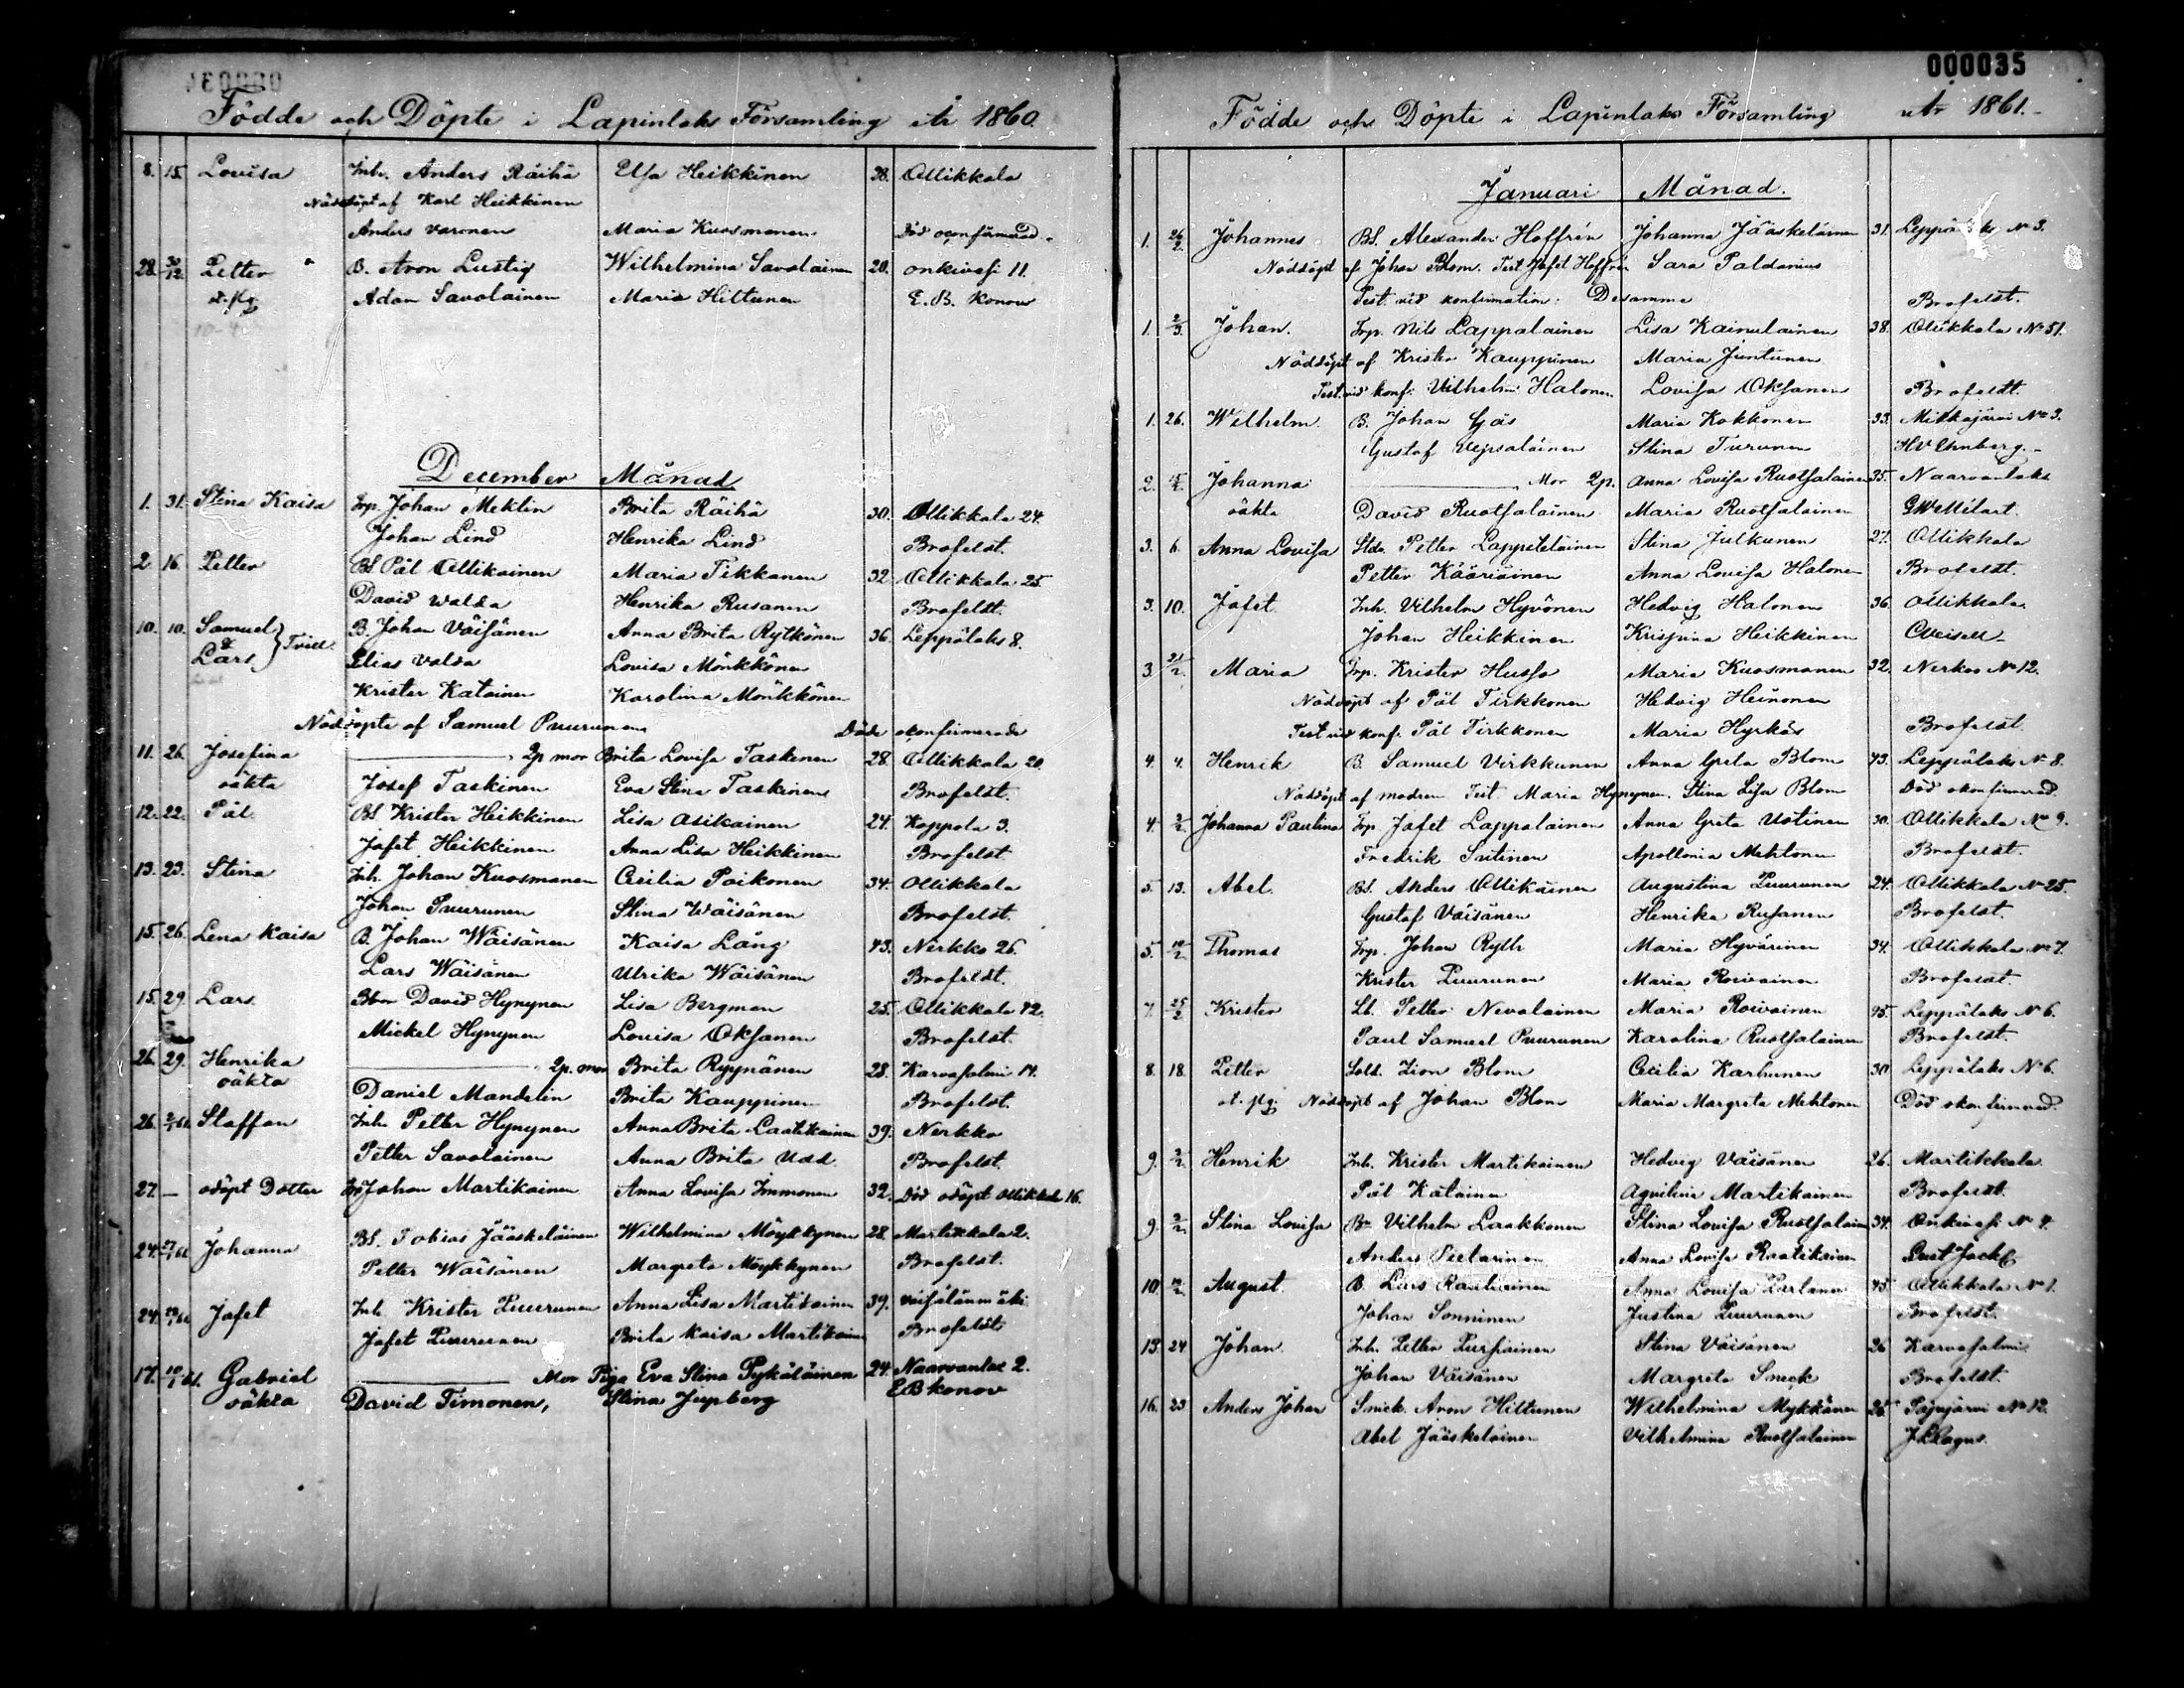 Födde och Döpte i Lapinlaks Församling År 1860.
8. 15. Lovisa Inh. Anders Räihä Elsa Heikkinen 38. Ollikkala
Nöddöpt af Karl Heikkinen
Anders Varonen Maria Kuosmanen Död okonfirmerad.
28. 30/12. Petter B. Aron Lustig Wilhelmina Savolainen 20. Onkivesi 11.
Adam Savolainen Maria Hiltunen E. B. Konow
December Månad
1. 31. Stina Kaisa Trp. Johan Meklin Brita Räihä 30. Ollikkala 24.
Johan Lind Henrika Lind Brofeldt.
2. 16. Petter BS Pål Ollikainen Maria Tikkanen 32 Ollikkala 25
David Walda Henrika Rusanen Brofeldt.
10. 10. Samuel & Lars } Tvill. B. Johan Väisänen Anna Brita Rytkönen 36. Leppälaks 8.
Elias Valda Lovisa Mönkkönen
Krister Katainen Karolina Mönkkönen
Nöddöpte af Samuel Puurunen Döde okonfirmerade
11. 26. Josefina 2p mor Brita Lovisa Taskinen 28. Ollikkala 20.
oäkta Josef Taskinen Eva Stina Taskinen Brofeldt.
12. 22. Pål. BS Krister Heikkinen Lisa Asikainen 24. Koppola 3.
Jafet Heikkinen Anna Lisa Heikkinen Brofeldt
13. 23. Stina Inh. Johan Kuosmanen Cecilia Poikonen 34. Ollikkala
Johan Puurunen Stina Wäisänen Brofeldt.
15. 26. Lena Kaisa B. Johan Wäisänen Kaisa Lång 43. Nerkko 26.
Lars Wäisänen Ulrika Wäisänen Brofeldt.
15. 29. Lars. Bbor David Hynynen Lisa Bergman 25. Ollikkala 42.
Mickel Hynynen Lovisa Oksanen Brofeldt.
26. 29. Henrika 2p. mor Brita Ryynänen 28. Karvasalmi 14.
oäkta Daniel Mandelin Brita Kauppinen Brofeldt.
26. 2/1 61 Staffan Inh. Petter Hynynen Anna Brita Laatikainen 39. Nerkko
Petter Savolainen Anna Brita Udd. Brofeldt.
27. — odöpt Dotter Johan Martikainen Anna Lovisa Immonen 32. Död odöpt Ollikkala 16.
24. 27/1 61 Johanna BS. Tobias Jääskeläinen Wilhelmina Möykkynen 28. Martikkala 2.
Petter Wäisänen Margreta Möykkynen Brofeldt.
24. Jafet Inh. Krister Puurunen Anna Lisa Martikainen 39. Väisälänmäki
Jafet Puurunen Brita Kaisa Martikainen Brofeldt
17. 10/1 61. Gabriel Mor Piga Eva Stina Pykäläinen 24. Naarvanlax 2.
oäkta David Timonen, Stina Jupberg EB Konov
000035
Födde och Döpte i Lapinlaks Församling År 1861.
Januari Månad.
1. 26/2. Johannes BS. Alexander Hoffrén Johanna Jääskeläinen 31. Leppälaks No 3.
Nöddöpt af Johan Blom. Test Jafet Hoffrén Sara Paldanius
Test. vid konfirmation: Desamma Brofeldt.
1. 2/3. Johan. Trp. Nils Lappalainen Lisa Kainulainen 38. Ollikkala No 51.
Nöddöpt af Krister Kauppinen Maria Juntunen
Test. vid konf. Vilhelm Halonen Lovisa Oksanen Brofeldt.
1. 26. Wilhelm B. Johan Gås Maria Kokkonen 33. Mitkajärvi No 3.
Gustaf Vepsäläinen Stina Turunen
2. Johanna Mor 2p. Anna Lovisa Ruotsalainen 35. Naarvanlaks
oäkta David Ruotsalainen Maria Ruotsalainen
3. 6. Anna Lovisa Petter Lappeteläinen Stina Julkunen 27. Ollikkala
Petter Kääriäinen Anna Lovisa Halonen Brofeldt.
3. 10. Jafet Inh. Vilhelm Hyvönen Hedvig Halonen 36. Ollikkala.
Johan Heikkinen Krispina Heikkinen
3. 21/2. Maria Trp. Krister Husso Maria Kuosmanen 32. Nerkoo No 12.
Nöddöpt af Pål Tirkkonen Hedvig Heinonen
Test vid konf. Pål Tirkkonen Maria Hyrkäs Brofeldt
4. 4. Henrik B. Samuel Virkkunen Anna Greta Blom 43. Leppälaks No 8.
Nöddöpt af modren Test. Maria Hynynen. Stina Lisa Blom Död okonfirmerad.
4. 2/2. Johanna Paulina Trp Jafet Lappalainen Anna Greta Ustinen 30. Ollikkala No 9.
Fredrik Sutinen Apollonia Mehtonen Brofeldt.
5. 13. Abel. BS. Anders Ollikainen Augustina Puurunen 24. Ollikkala No 25.
Gustaf Väisänen Henrika Rusanen Brofeldt.
5. Thomas Trp. Johan Ryth Maria Hyvärinen 34. Ollikkala No 7.
Krister Puurunen Maria Roivainen Brofeldt.
7. 25/2 Krister Petter Nevalainen Maria Roivainen 45. Leppälaks No 6.
Paul Samuel Puurunen Karolina Ruotsalainen Brofeldt.
8. 18. Petter Sold. Zion Blom Cecilia Karhunen 30 Leppälaks No 6.
Nöddöpt af Johan Blom Maria Margreta Mehtonen Död okonfirmerad.
9. 2/2. Henrik Inh. Krister Martikainen Hedvig Väisänen 26. Martikkala
Pål Katainen Aqvilina Martikainen Brofeldt.
9. 2/2. Stina Lovisa Vilhelm Laakkonen Stina Lovisa Ruotsalainen 34. Onkivesi No 4.
Anders Pietarinen Anna Lovisa Raatikainen
10. August. B. Lars Rautiainen Anna Lovisa Partanen 43. Ollikkala No 1.
Johan Sonninen Justina Puurunen Brofeldt.
13. 24 Johan Inh. Petter Pursiainen Stina Väisänen 26 Karvasalmi
Johan Väisänen Margreta Smeck Brofeldt.
16. 23 Anders Johan Smick. Aron Hiltunen Wilhelmina Mykkänen 25 Pajujärvi No 12.
Abel Jääskeläinen Vilhelmina Ruotsalainen